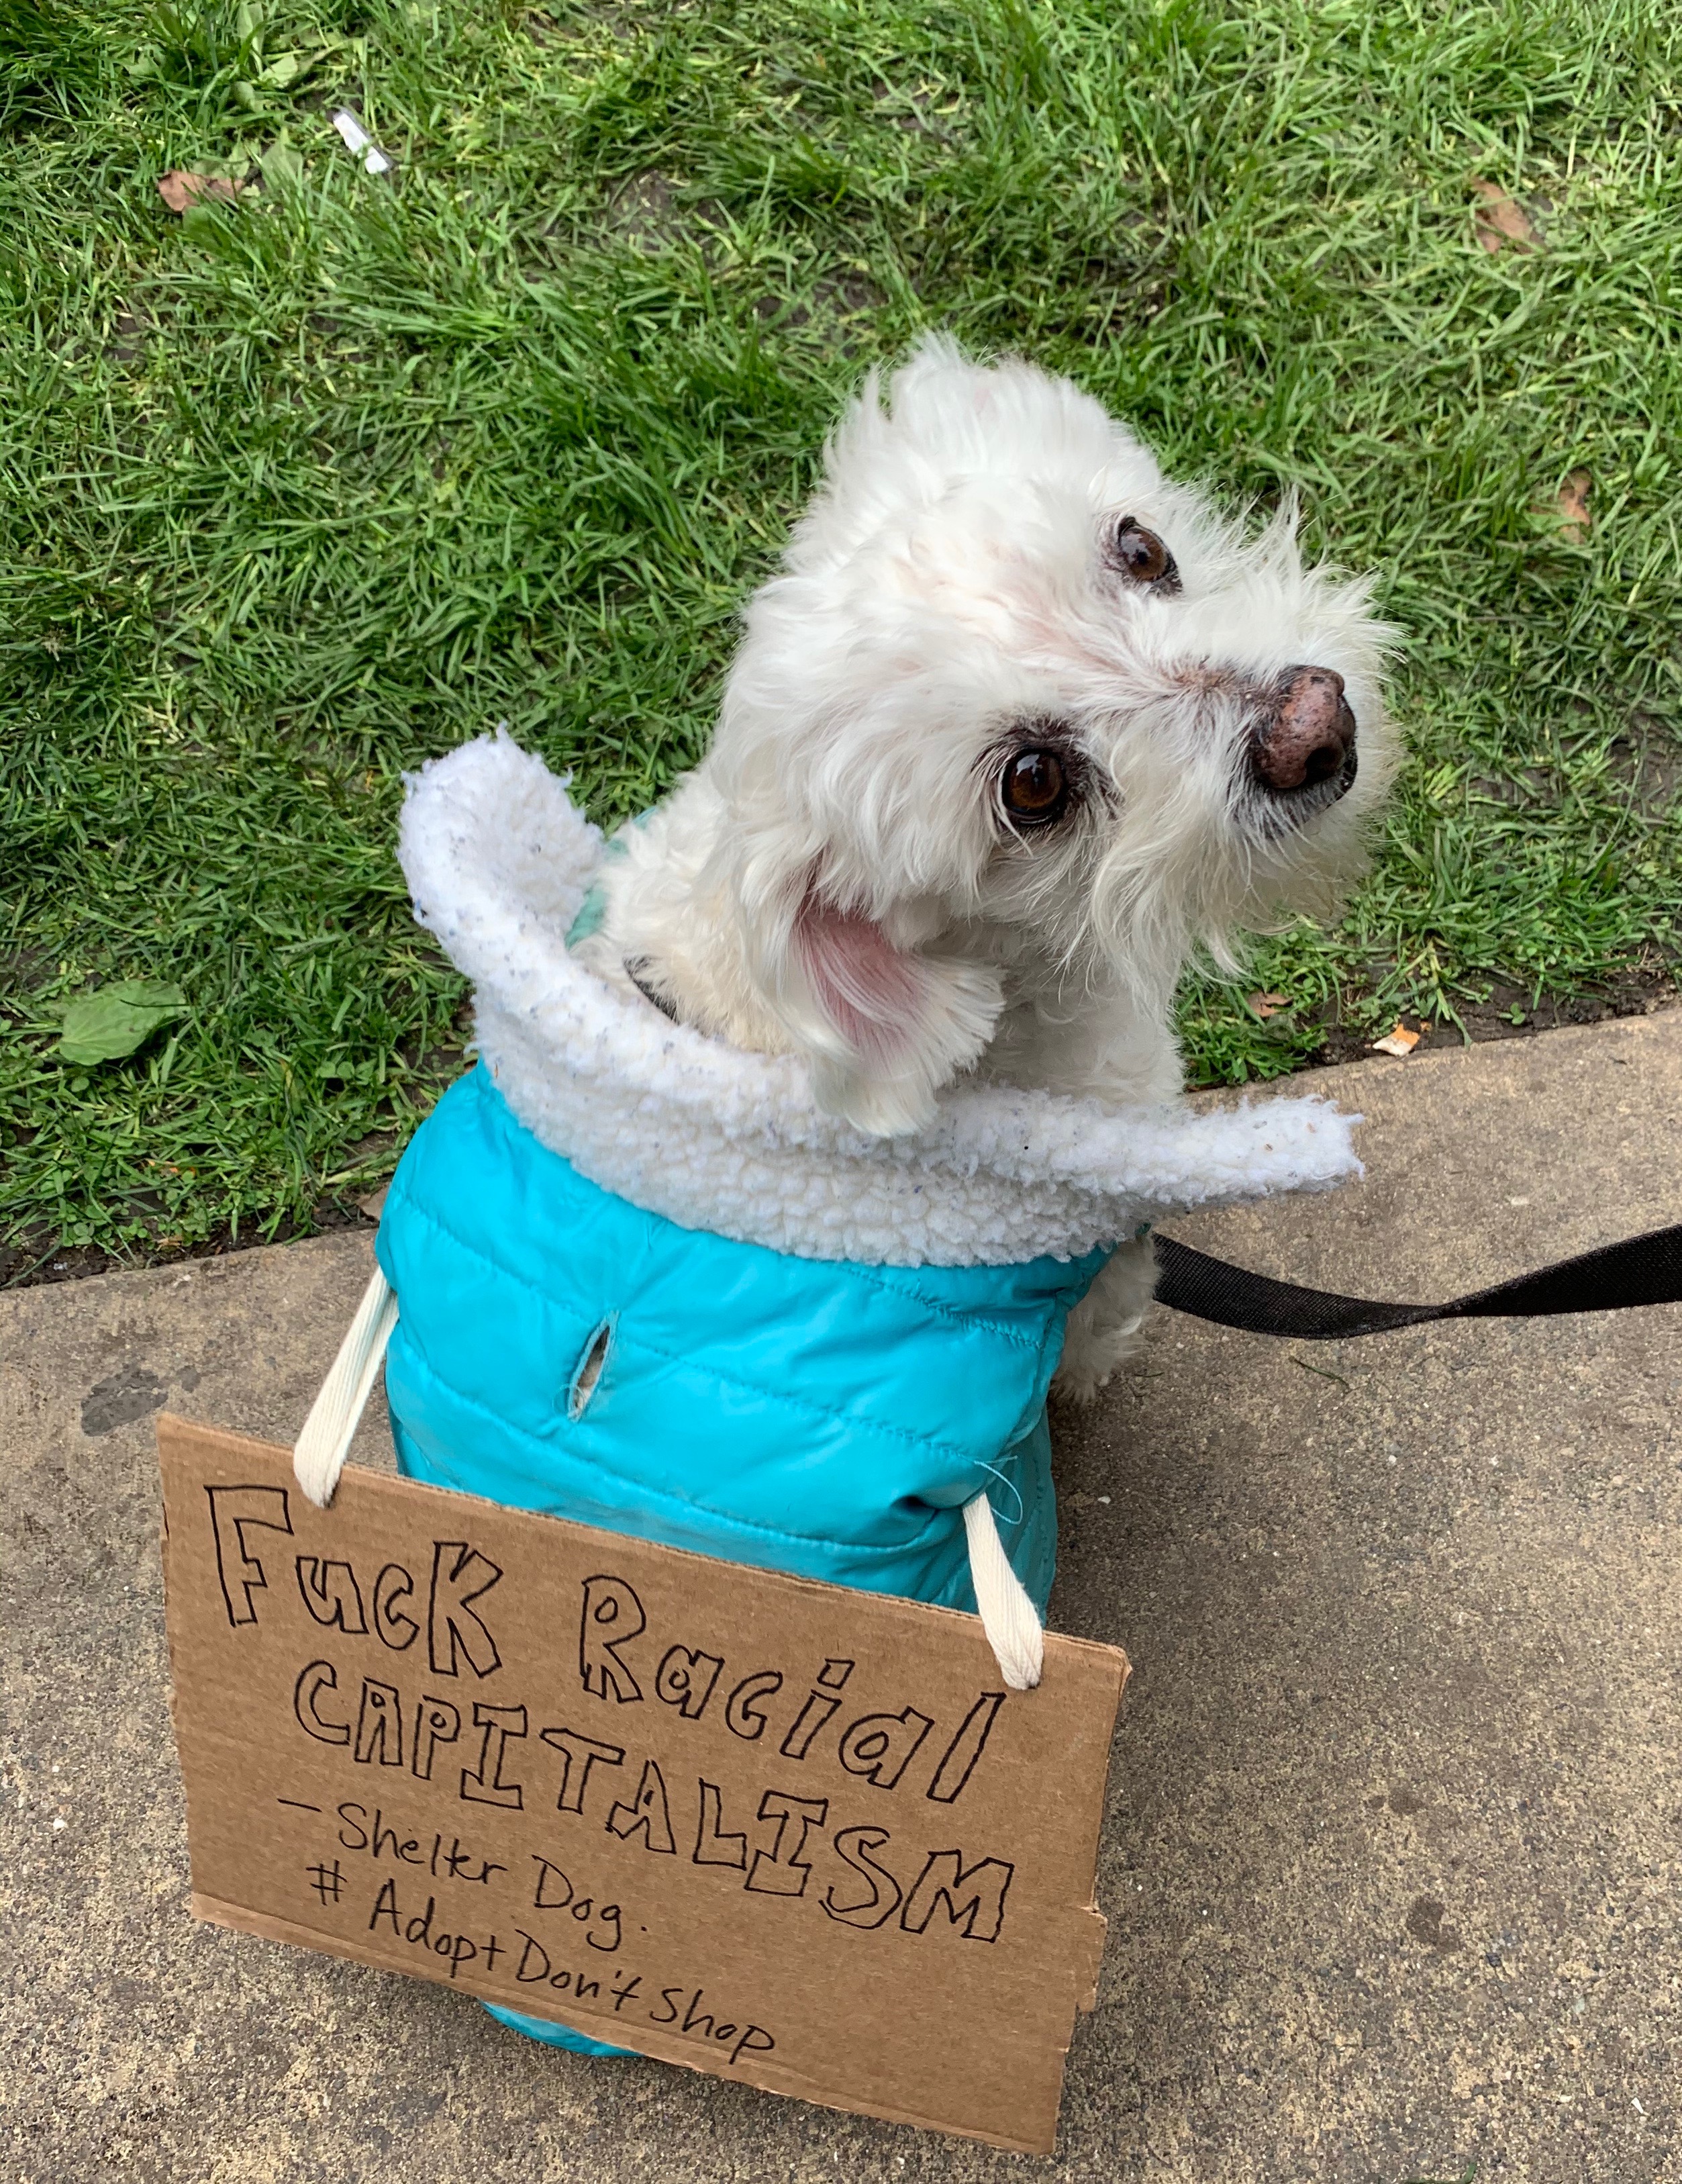 Fuck Racial
CAPITALISM
- Shelter Dog.
# Adopt Don't Shop